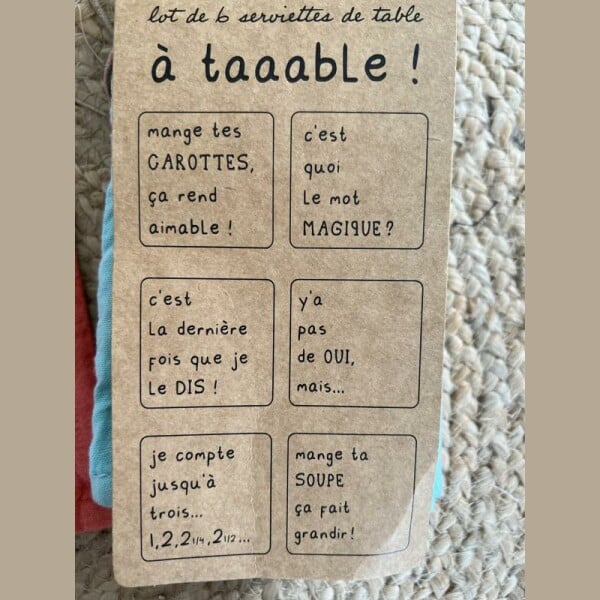 lot de 6 serviettes de table
à taaable !
mange tes
CAROTTES,
ça rend
aimable !
c'est
quoi
le mot
MAGIQUE ?
c'est
la dernière
fois que je
le DIS !
y'a
pas
de OUI,
mais...
je compte
jusqu'à
trois...
1,2,2 1/4,2 1/2...
mange ta
SOUPE
ça fait
grandir !